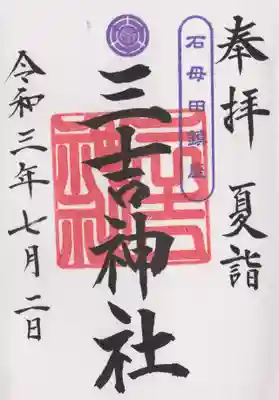 奉拝 夏詣
石母田鎮座
三吉神社
令和三年七月二日
三吉神社